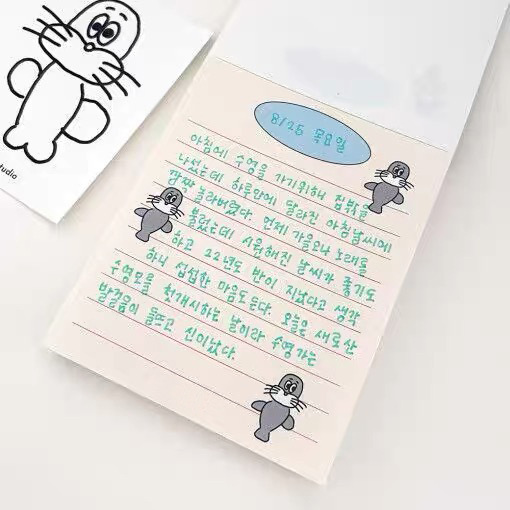 tudio
8/25 목요일
아침에 수영을 가기위해 집밖을
나섰는데 하루만에 달라진 아침날씨에
깜짝 놀라버렸다. 언제 가을오나 노래를
불렀는데 시원해진 날씨가 좋기도
하고 22년도 반이 지났다고 생각
하니 섭섭한 마음도든다. 오늘은 새로산
수영모를 첫개시하는 날이라 수영가는
발걸음이 들뜨고 신이났다.